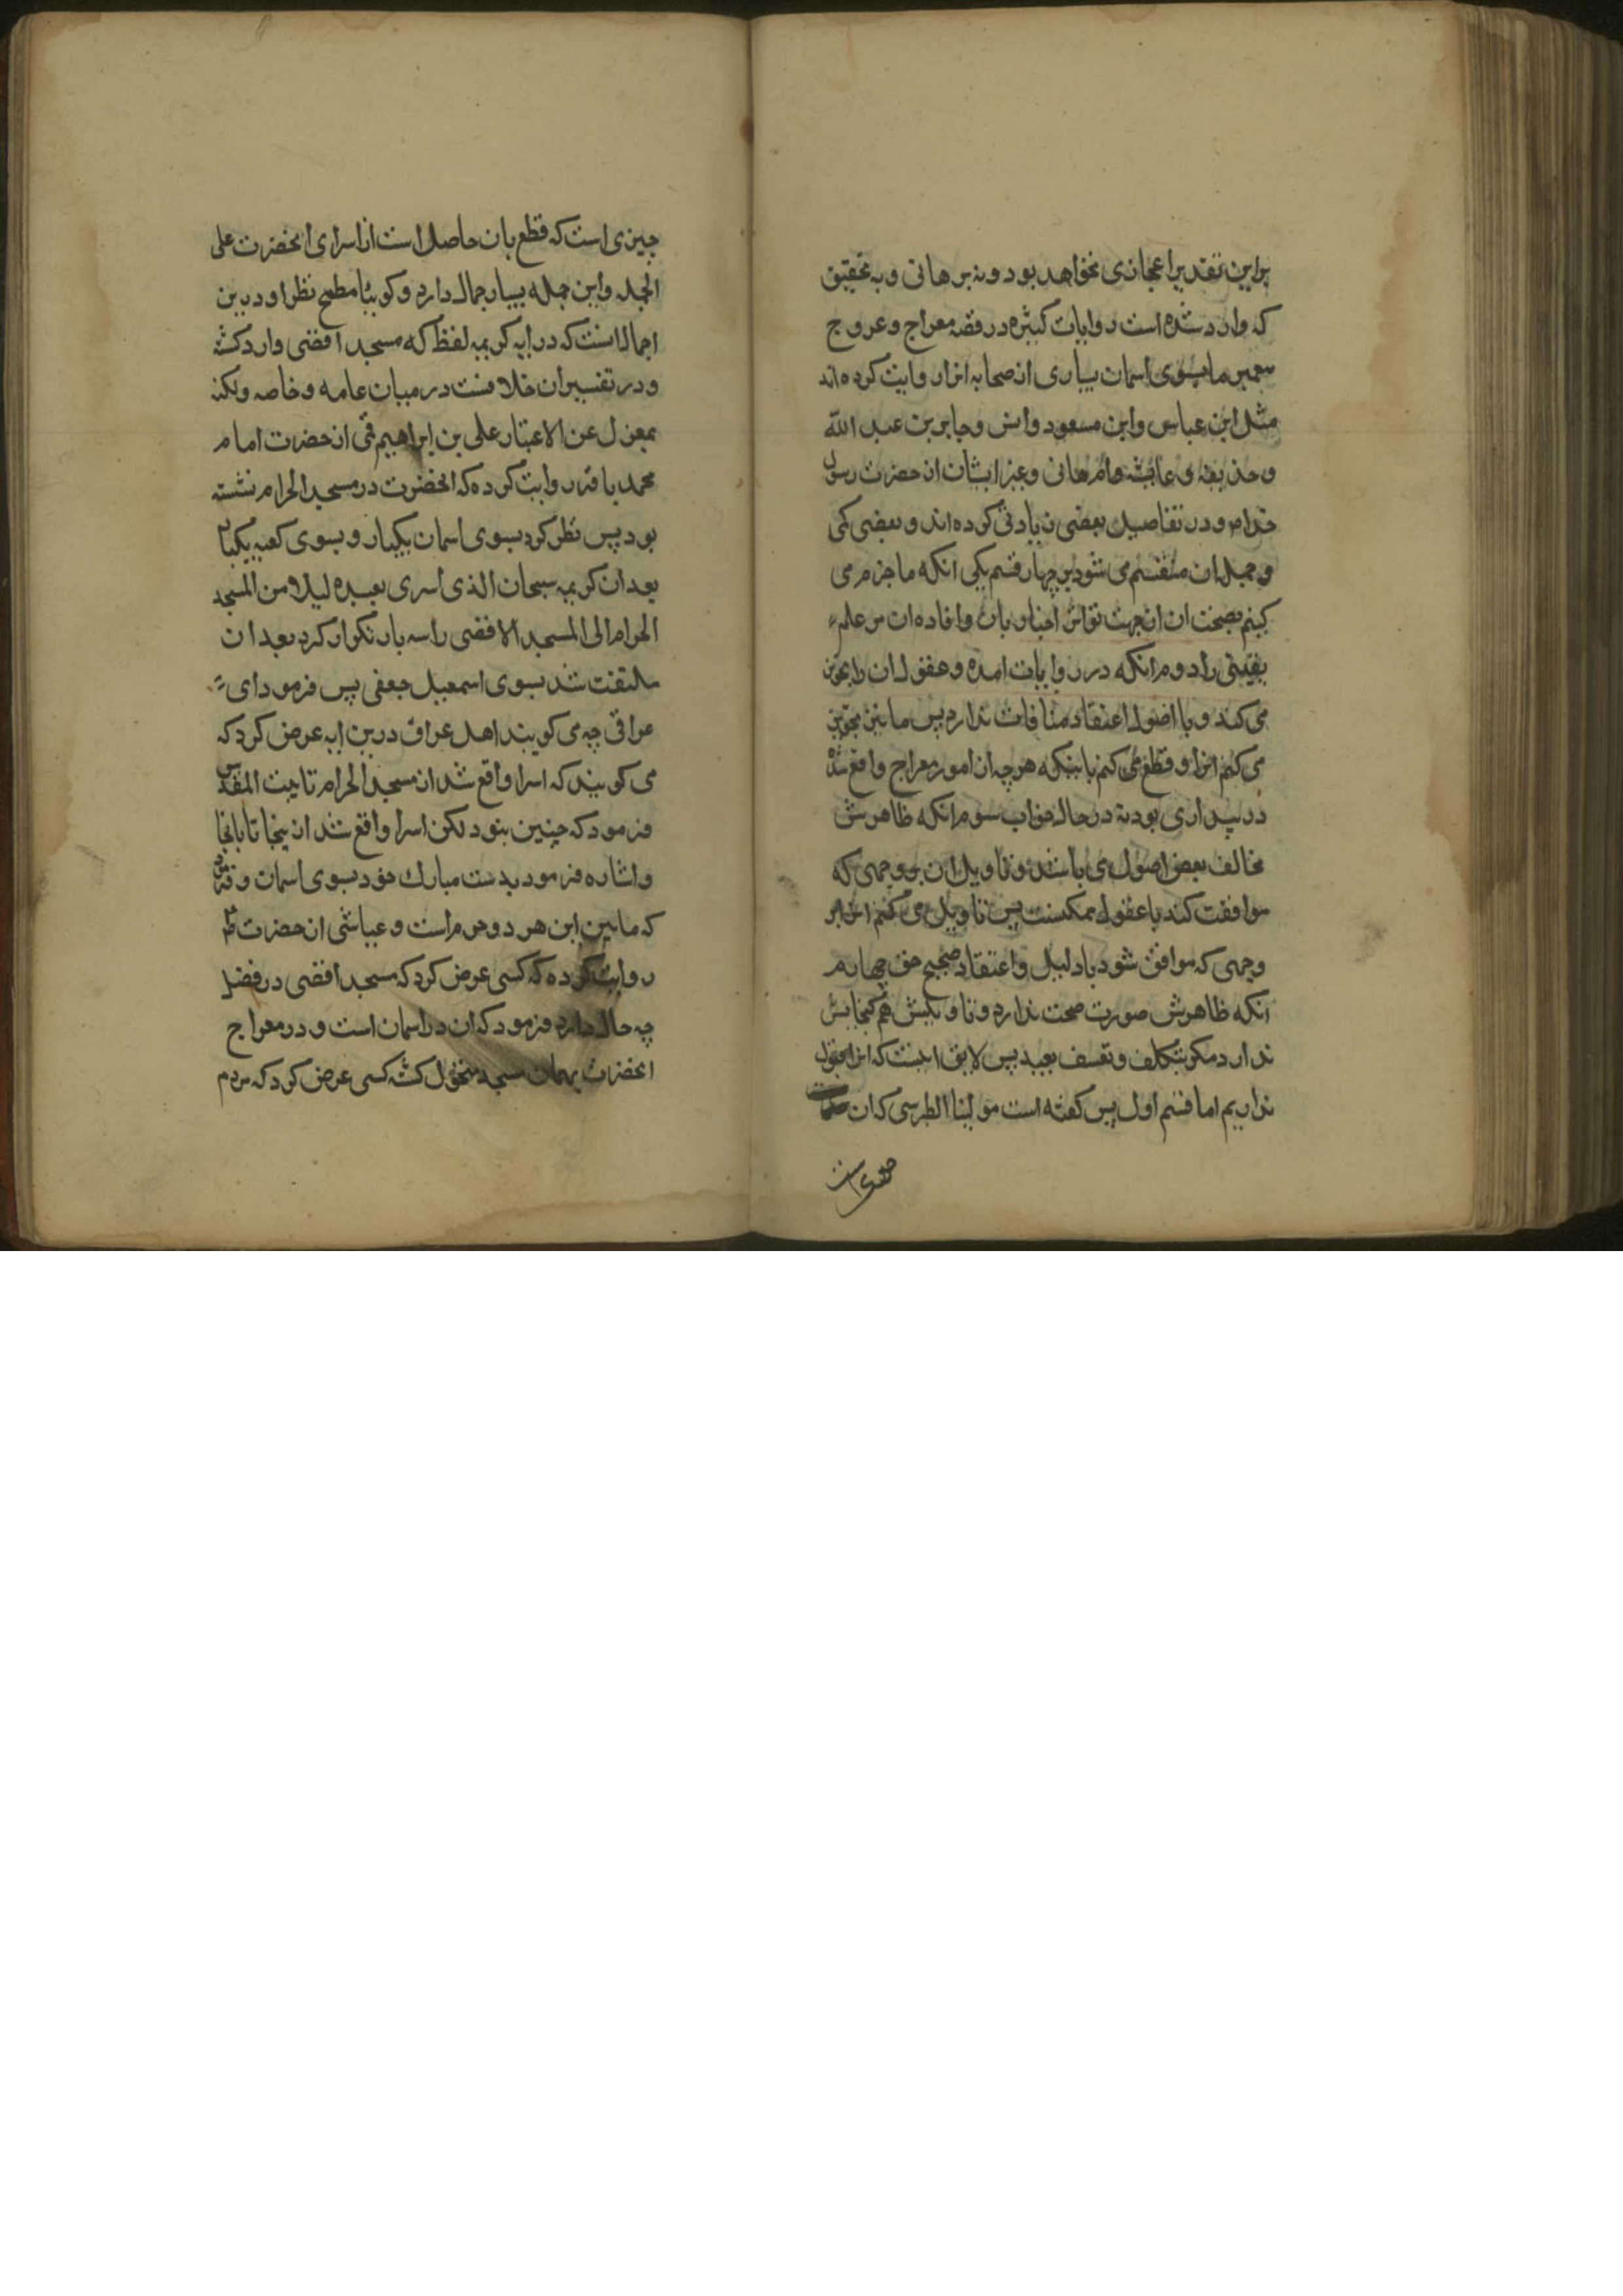 براین تقدیر اعجازی نخواهد بود و نه برهانی و به تحقیق
که وارد شده است روایات کثیره در قصه معراج و عروج
پیغمبر ما بسوی اسمان بسیاری از صحابه انرا روایت کرده اند
مثل ابن عباس وابن مسعود وانس وجابر بن عبد الله
و حذیفه و عایشه وام هانی وغیر ایشان از حضرت رسول
خدا ص و در تفاصیل بعضی زیادتی کرده اند و بعضی کمی
و مجمل ان منقسم می شود بر چهار قسم یکی انکه ما جزم می
کنیم بصحت ان از جهت تواتر اخبار بان وافاده ان مر علم
یقینی را دوم انکه در روایات امده و عقول ان را تجویز
می کند و با اصول اعتقاد منافات ندارد پس ما نیز تجویز
می کنیم انرا و قطع می کنیم باینکه هر چه از امور معراج واقع شده
در بیداری بود نه در حال خواب سوم انکه ظاهرش
مخالف بعض اصول می باشد و تاویل ان بر وجهی که
موافقت کند با عقول ممکنست پس تاویل می کنیم انرا بر
وجهی که موافق شود با دلیل واعتقاد صحیح حق چهارم
انکه ظاهرش صورت صحت ندارد و تاویلش هم گنجایش
ندارد مگر بتکلف و تعسف بعید پس لایق انست که انرا قبول
نداریم اما قسم اول پس گفته است مولینا الطبرسی که ان
چیزی است که قطع بان حاصل است از اسرای انحضرت علی
الجمله واین جمله بسیار جمال دارد و گوییا مطمح نظر او درین
اجمال انست که در ایه کریمه لفظ که مسجد اقصی وارد گشته
و در تفسیر ان خلافست در میان عامه و خاصه ولکنه
بمعزل عن الاعتبار علی بن ابراهیم قمی از حضرت امام
محمد باقر روایت کرده که انحضرت در مسجد الحرام نشسته
بود پس نظر کرد بسوی اسمان یکبار و بسوی کعبه یکبار
بعد ازان کریمه سبحان الذی اسری بعبده لیلا من المسجد
الحرام الی المسجد الاقصی را سه بار تکرار کرد بعد ازان
ملتفت شد بسوی اسمعیل جعفی پس فرمود ای
عراقی چه می گویند اهل عراق درین ایه عرض کرد که
می گویند که اسرا واقع شد از مسجد الحرام تا بیت المقدس
فرمود که چنین نبود لکن اسرا واقع شد از ینجا تا بانجا
واشاره فرمود بدست مبارک خود بسوی اسمان و فرمود
که ما بین این هر دو حرم است و عیاشی از حضرت
روایت کرده که کسی عرض کرد که مسجد اقصی در فضل
چه حال دارد فرمود که ان در اسمان است و در معراج
انحضرت بهمان مسجد متحول گشته کسی عرض کرد که مردم